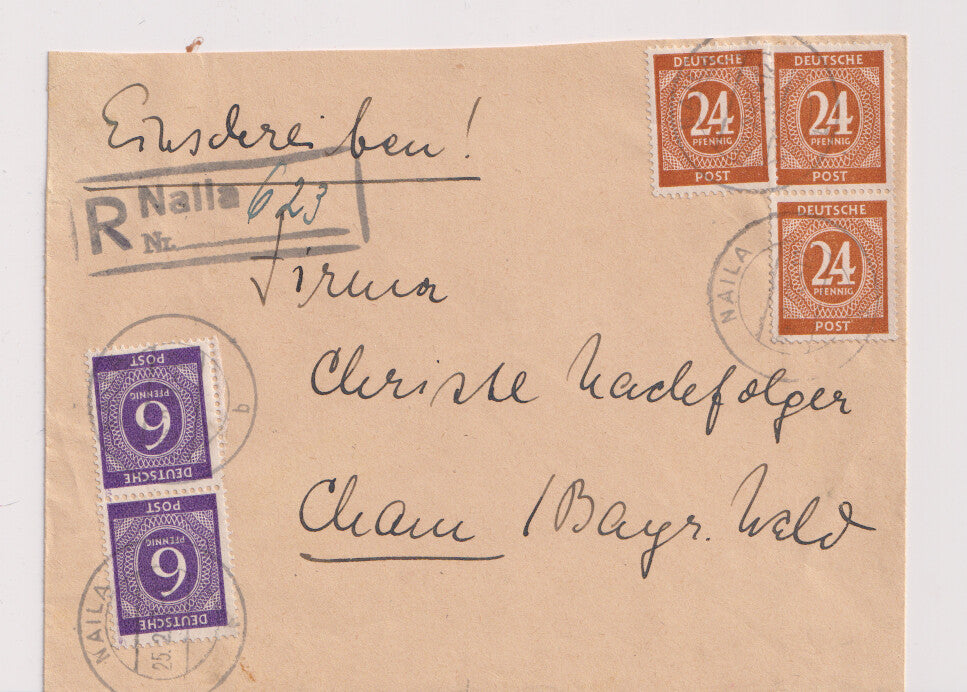 Einschreiben!
R Naila
Nr. 623
Firma
Christl Nachfolger
Cham / Bayr. Wald
DEUTSCHE
24
PFENNIG
POST
DEUTSCHE
24
PFENNIG
POST
DEUTSCHE
24
PFENNIG
POST
NAILA
DEUTSCHE
6
PFENNIG
POST
b
DEUTSCHE
6
PFENNIG
POST
NAILA
25.2